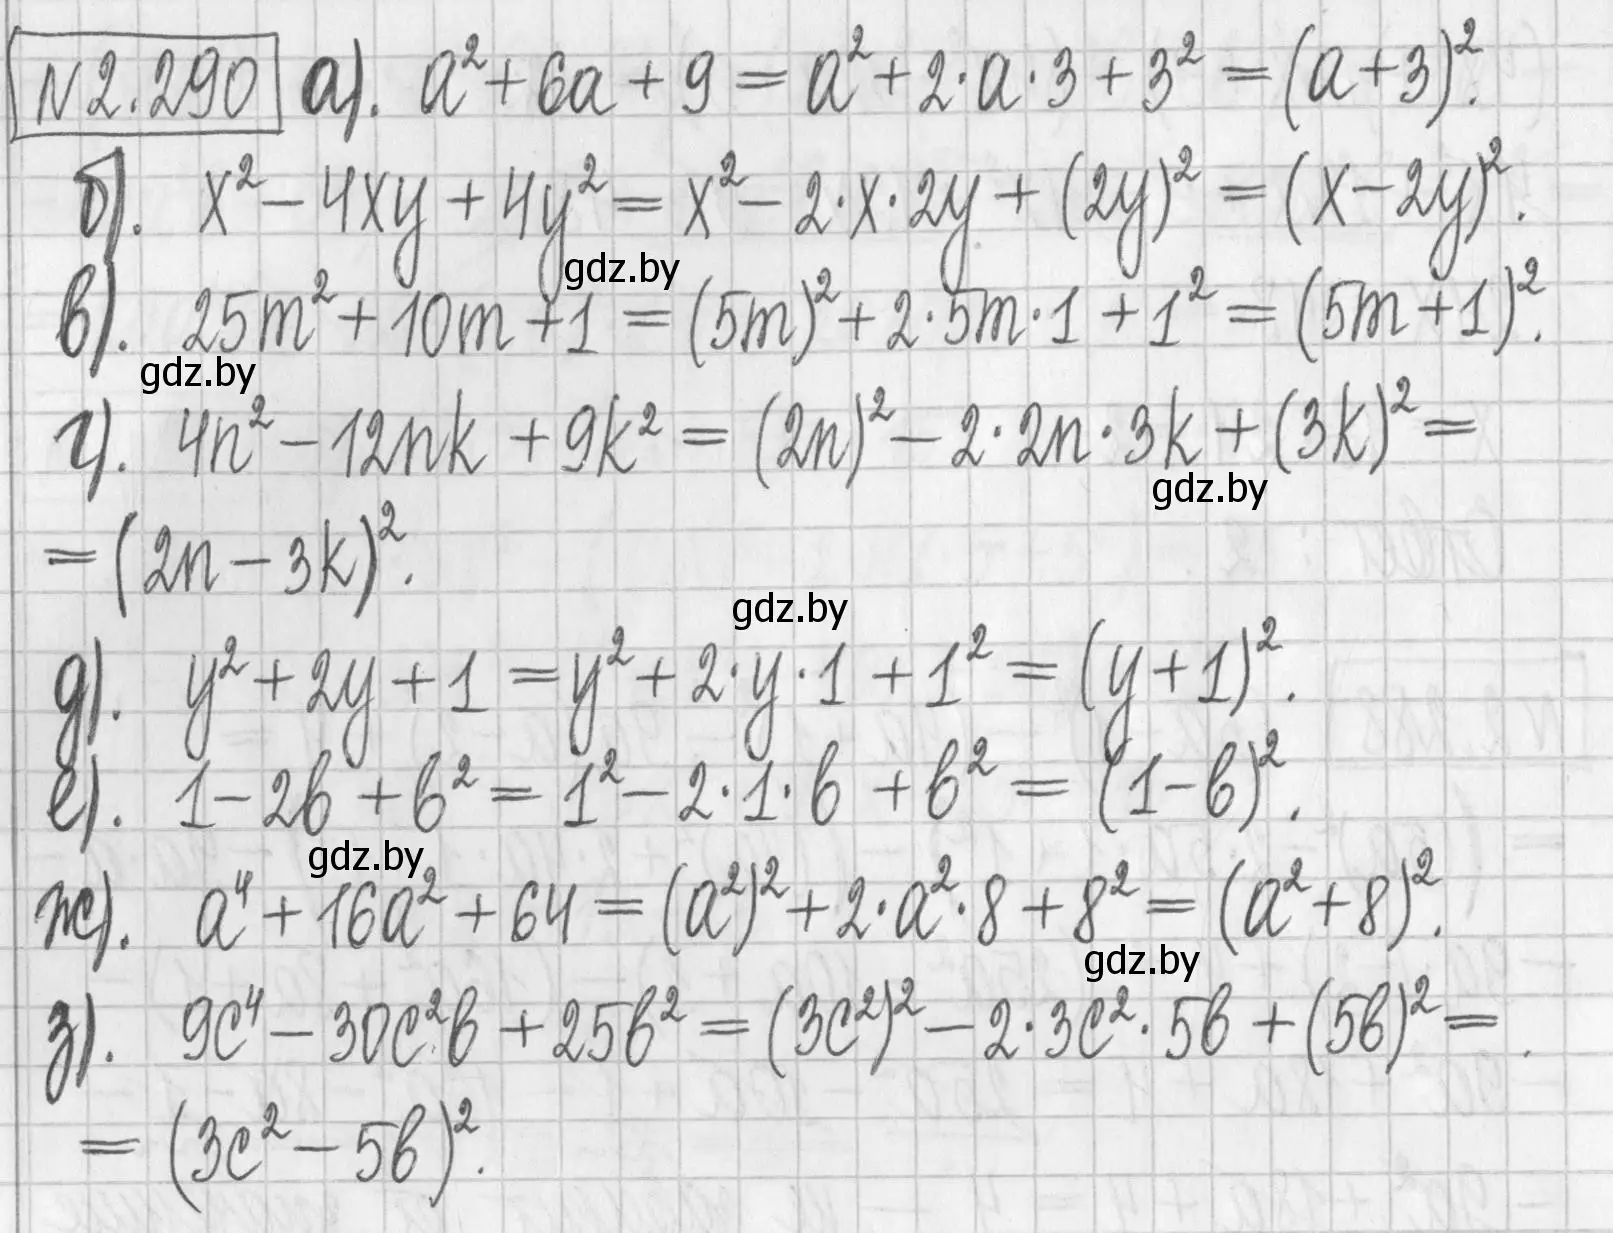 N2.290 а). a² + 6a + 9 = a² + 2·a·3 + 3² = (a+3)².
б). x² - 4xy + 4y² = x² - 2·x·2y + (2y)² = (x-2y)².
gdz.by
в). 25m² + 10m + 1 = (5m)² + 2·5m·1 + 1² = (5m+1)².
gdz.by
г). 4n² - 12nk + 9k² = (2n)² - 2·2n·3k + (3k)² =
gdz.by
= (2n - 3k)².
gdz.by
д). y² + 2y + 1 = y² + 2·y·1 + 1² = (y+1)².
е). 1 - 2b + b² = 1² - 2·1·b + b² = (1-b)².
gdz.by
ж). a⁴ + 16a² + 64 = (a²)² + 2·a²·8 + 8² = (a²+8)².
gdz.by
з). 9c⁴ - 30c²b + 25b² = (3c²)² - 2·3c²·5b + (5b)² =
= (3c² - 5b)².